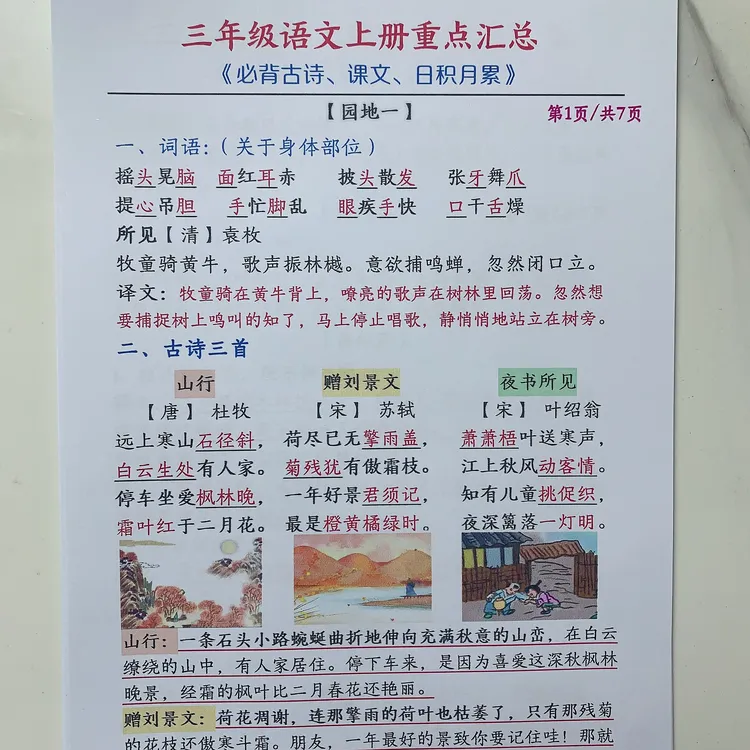 三年级语文上册重点汇总
《必背古诗、课文、日积月累》
【园地一】
第1页/共7页
一、词语：（关于身体部位）
摇头晃脑 面红耳赤 披头散发 张牙舞爪
提心吊胆 手忙脚乱 眼疾手快 口干舌燥
所见【清】袁枚
牧童骑黄牛，歌声振林樾。意欲捕鸣蝉，忽然闭口立。
译文：牧童骑在黄牛背上，嘹亮的歌声在树林里回荡。忽然想
要捕捉树上鸣叫的知了，马上停止唱歌，静悄悄地站立在树旁。
二、古诗三首
山行 赠刘景文 夜书所见
【唐】 杜牧 【宋】 苏轼 【宋】 叶绍翁
远上寒山石径斜， 荷尽已无擎雨盖， 萧萧梧叶送寒声，
白云生处有人家。 菊残犹有傲霜枝。 江上秋风动客情。
停车坐爱枫林晚， 一年好景君须记， 知有儿童挑促织，
霜叶红于二月花。 最是橙黄橘绿时。 夜深篱落一灯明。
山行：一条石头小路蜿蜒曲折地伸向充满秋意的山峦，在白云
缭绕的山中，有人家居住。停下车来，是因为喜爱这深秋枫林
晚景，经霜的枫叶比二月春花还艳丽。
赠刘景文：荷花凋谢，连那擎雨的荷叶也枯萎了，只有那残菊
的花枝还傲寒斗霜。朋友，一年最好的景致你要记住哇！那就